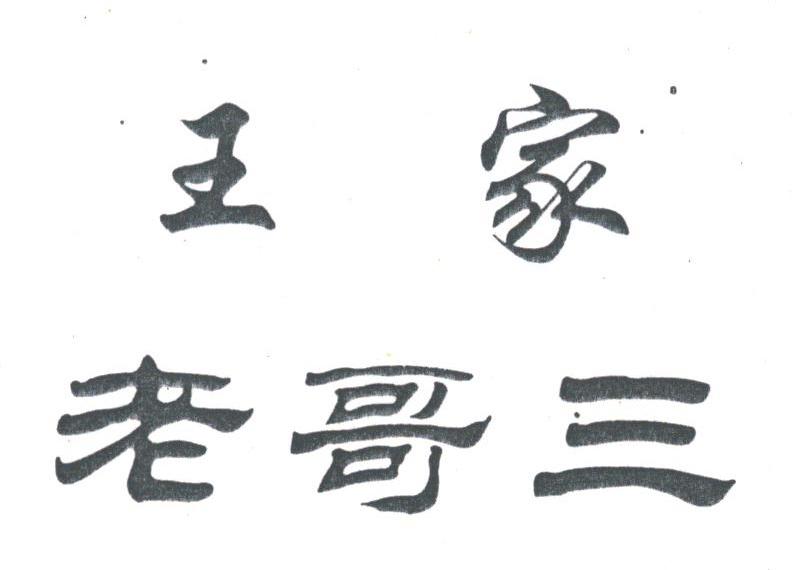 王家
老哥三